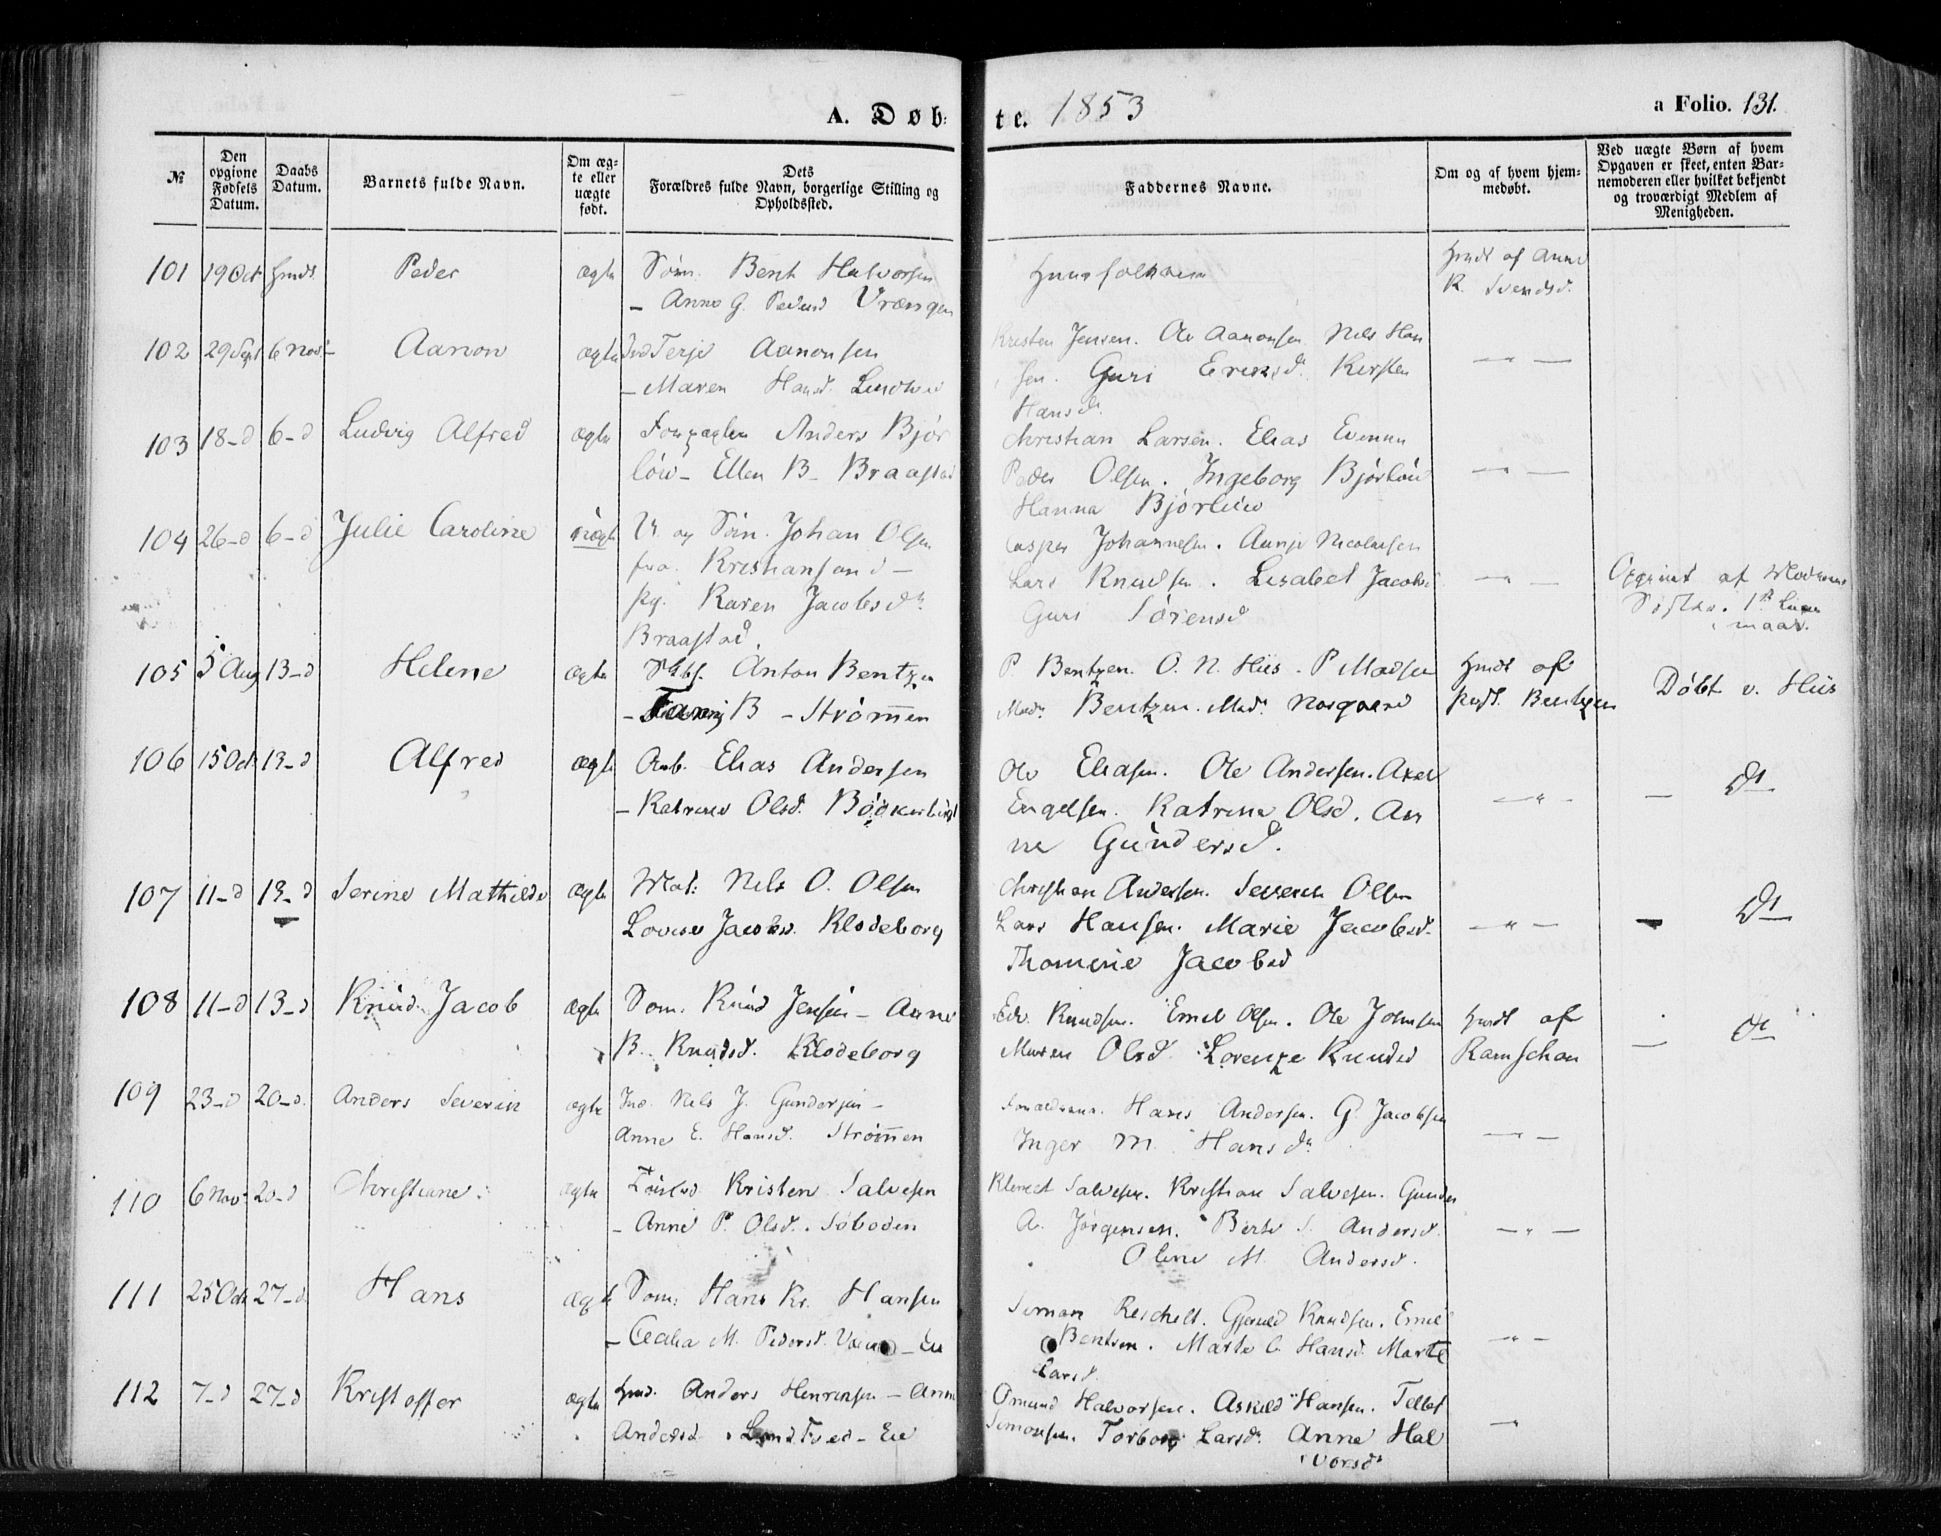 A. Døb-
te. 1853
a Folio. 131.
№
Den opgivne Fødsels Datum.
Daabs Datum.
Barnets fulde Navn.
Om æg-te eller uægte født.
Dets Forældres fulde Navn, borgerlige Stilling og Opholdssted.
Faddernes Navne.
Om og af hvem hjem-medøbt.
Ved uægte Børn af hvem Opgaven er skeet, enten Bar-nemoderen eller hvilket bekjendt og troværdigt Medlem af Menigheden.
101 19 Oct hmdt Peder ægte Søm. Bent Halvorsen hmdt af Anne
– Anne G. Vrængen K. Svends.
102 29 Sept 6 Nov. Aanon ægte Ind Terje Aanonsen Kresten Jensen. Ole Aanonsen Nels Han
– Maren Hansd. sen. Guri Ericksd. Kirsten — " —
Hansd.
103 18–d 6–d Ludvig Alfred ægte Anders Bjor Christian Larsen. Elias Evensen
løw – Ellen B – Braastad Peder Olsen. Ingeborg Bjorløw — " —
Hanna Bjorløw
104 26–d 6–d Julie Caroline uægte U. og Søm. Johan Olsen Casper Johannesen. Nicolaisen
fra Kristiansand – Lars Knudsen. Lisabet Jacobs — " — af Moderens
pg. Karen Jacobsd. Guri Sørensd
Braastad.
105 5 Aug 13–d Helene ægte Anton Bentzen P Bentzen. O. N. Hiis. P Madsen hmdt af Døbt v. Hiis
– Fanny B – Strømmen Mad. Bentzen. Mad. Norgaard Bentzen
106 15 Oct 13–d Alfred ægte Arb. Elias Andersen Ole Eliasen. Ole Andersen. Axel — dt
– Katrine Olsd. Engelsen. Katrina Olsd. An — " —
ne Gundersd.
107 11–d 13–d Serine Mathilde ægte Mat. Nels O. Olsen Christian Andersen. Severin Olsen — dt
Lovise Jacobsd. Klodeborg Lars Hansen. Marie Jacobsd. — " —
Thomine Jacobsd
108 11–d 13–d Knud Jacob ægte Søm. Knud Jensen – Anne Edv. Knudsen. Emil Olsen. Ole Johnsen hmdt af — dt
B. Knudsd. Klodeborg Maren Olsd. Lorenze Knudsd Ramschou
109 23–d 20–d. Anders Severin ægte Ind. Nels J. Gundersen – Hans Andersen. G. Jacobsen
Anne E. Hansd. Strømmen Inger M. Hansd. — " —
110 6 Nov 20–d Christiane. ægte Kristen Salvesen Klemet Salvesen. Kristian Salvesen. Gunder
– Anne P. Olsd. Søboden A. Jørgensen. Berte S. Andersd. — " —
Oline M. Andersd.
111 25 Oct 27–d Hans ægte Søm: Hans Kr. Hansen Simon Reschelt. Gjeruld Knudsen. Emil
– Cecilia M. Pedersd. – Eie Bentsen. Marte C. Hansd. Marte — " —
Larsd.
112 7–d 27–d Kristoffer ægte Anders Henriksen – Anne Omund Halvorsen. Askild Hansen. Tellef
Andersd. Lundtved – Eie Simonsen. Torborg Larsd. Anne Hal — " —
vorsd